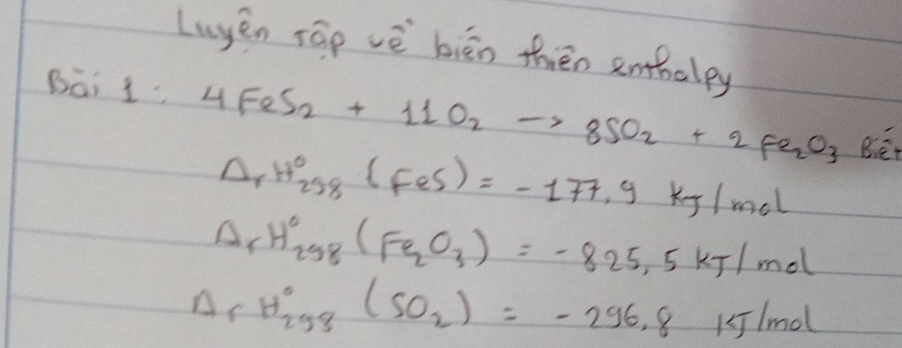 Luyện tập về biến thiên enthalpy
Bài 1: 4FeS₂ + 11O₂ -> 8SO₂ + 2Fe₂O₃ Biết
ΔrH°₂₉₈ (FeS) = -177,9 kJ/mol
ΔrH°₂₉₈ (Fe₂O₃) = -825,5 kJ/mol
ΔrH°₂₉₈ (SO₂) = -296,8 KJ/mol